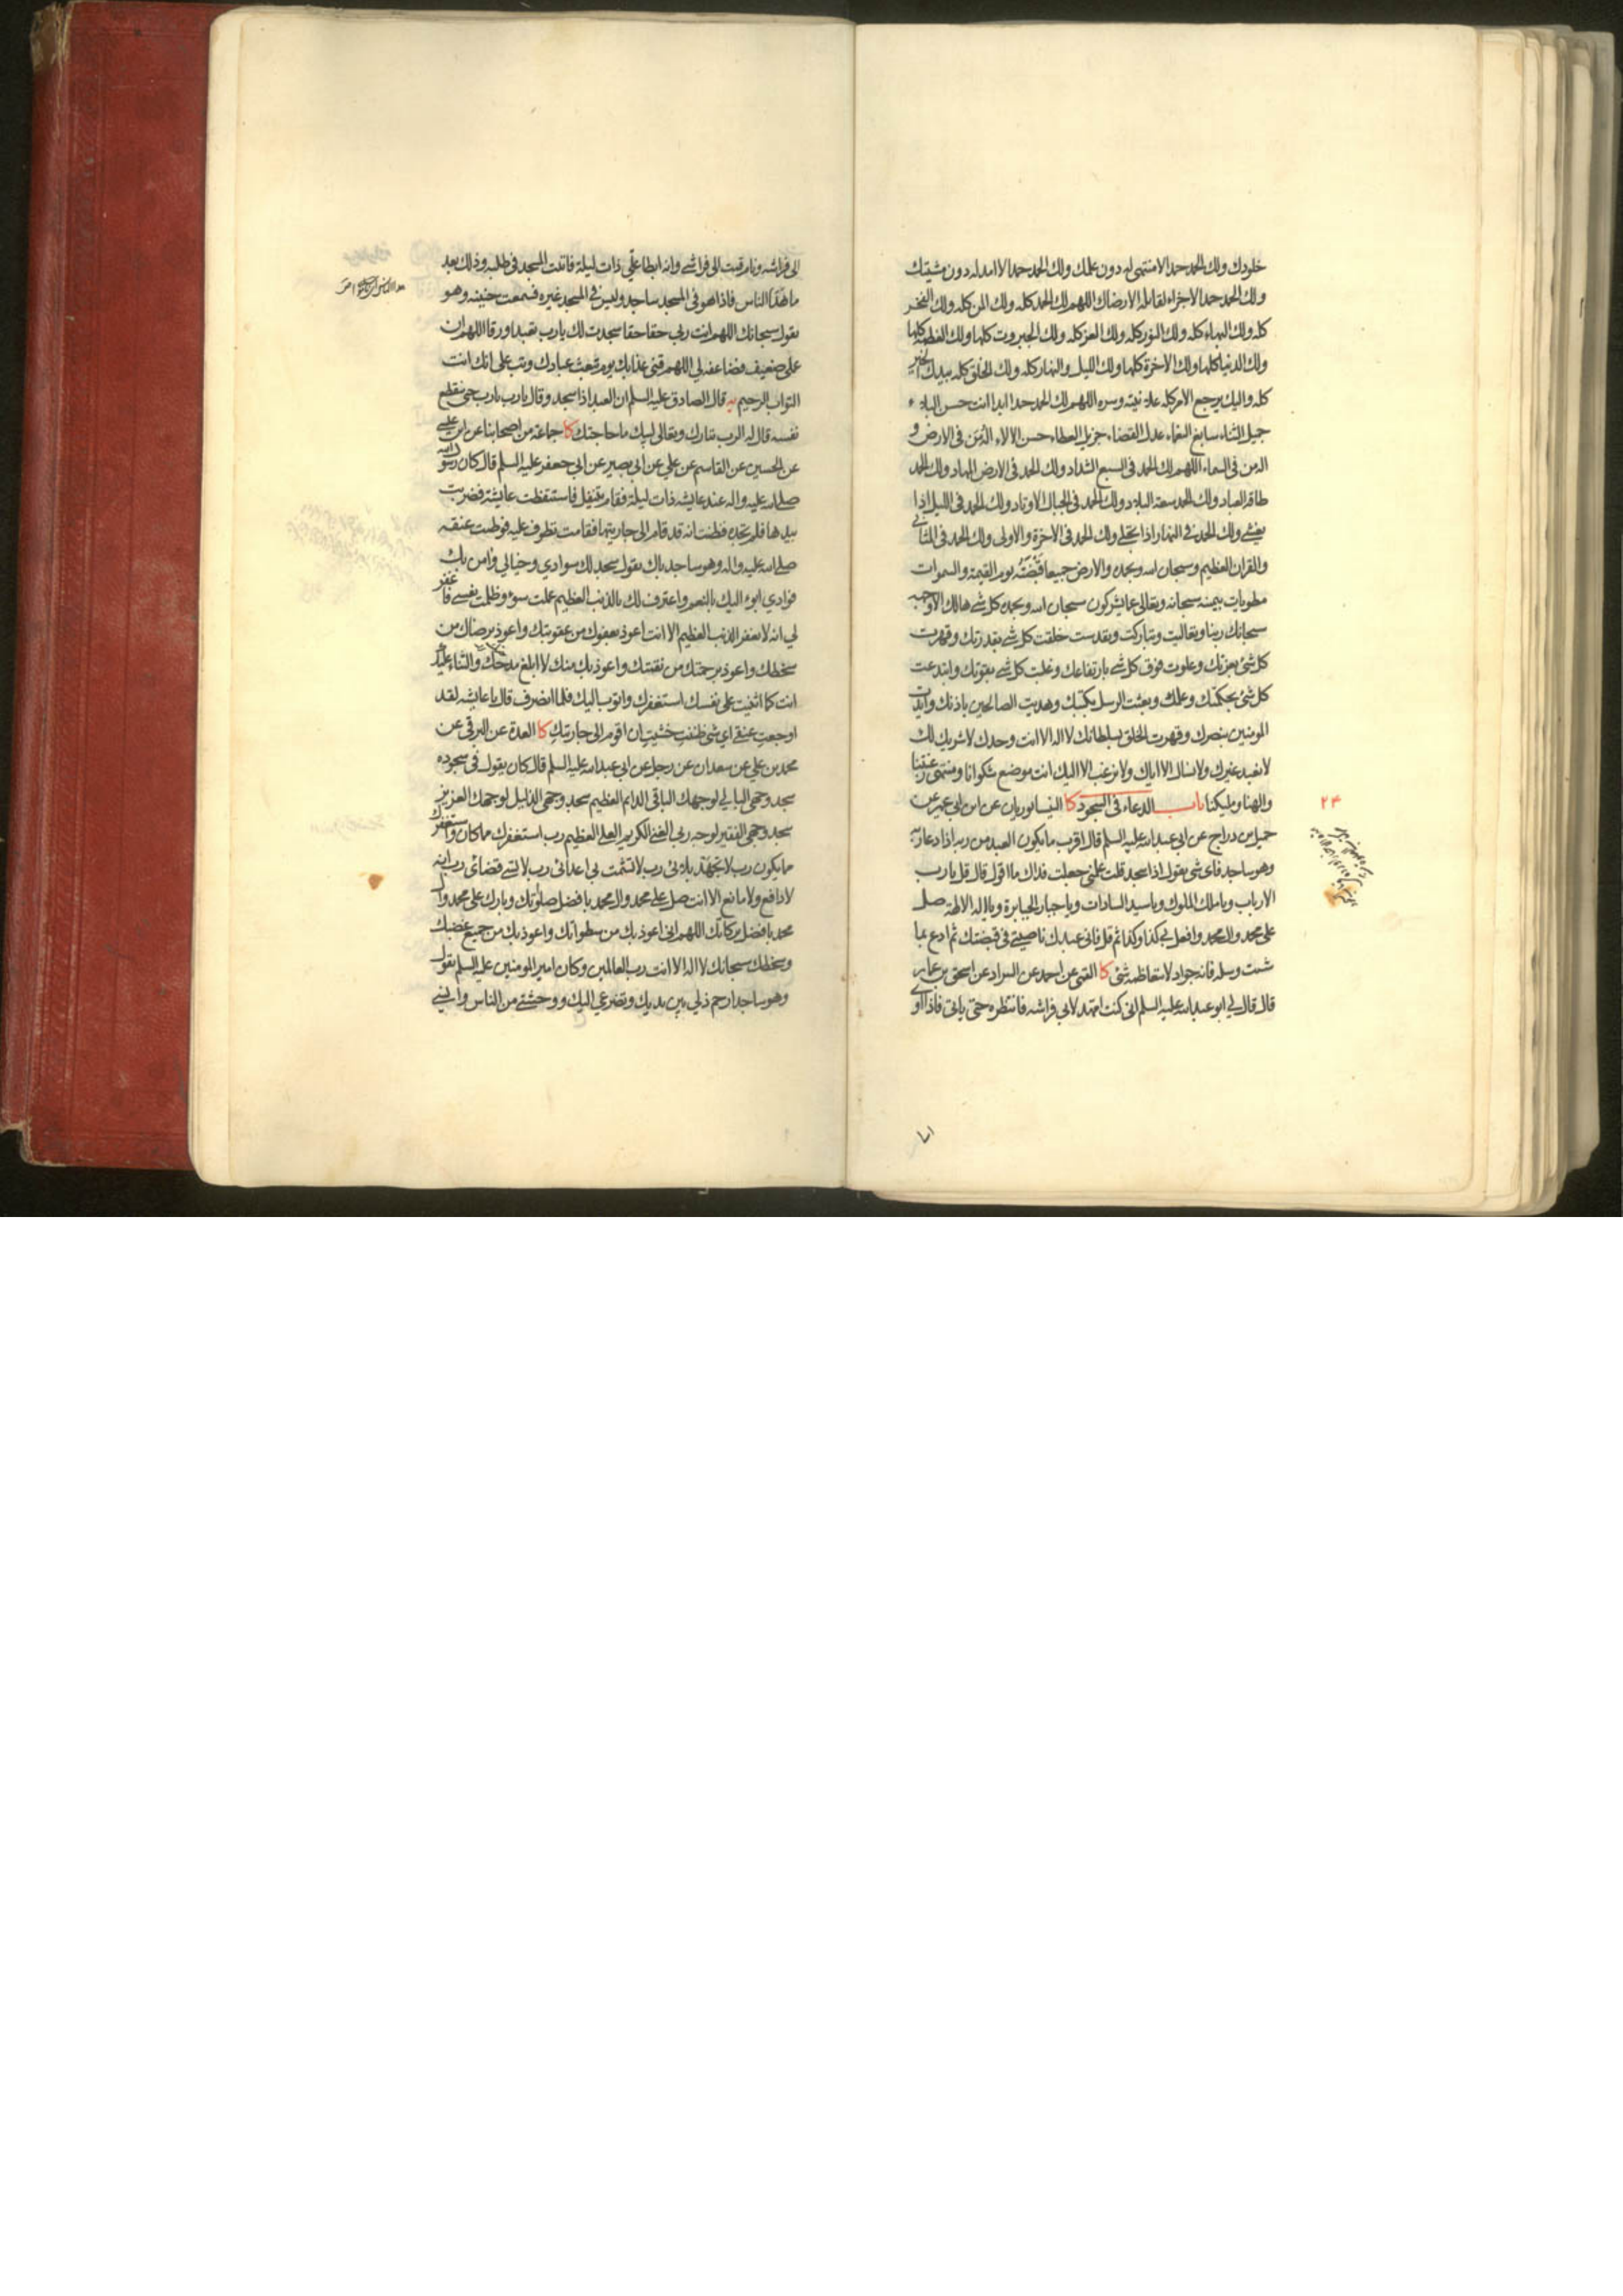 خلودك ولك الحمد حمدا لا منتهى له دون علمك ولك الحمد حمدا لا امد له دون مشيتك
ولك الحمد حمدا لا اجزاء لقائله الا رضاك اللهم لك الحمد كله ولك المن كله ولك الفخر
كله ولك البهاء كله ولك النور كله ولك العز كله ولك الجبروت كلها ولك العظمة كلها
ولك الدنيا كلها ولك الاخرة كلها ولك الليل والنهار كله ولك الخلق كله بيدك الخير
كله واليك يرجع الامر كله علانيته وسره اللهم لك الحمد حمدا ابدا انت حسن البلاء
جميل الثناء سابغ النعماء عدل القضاء جزيل العطاء حسن الالاء اله من فى الارض و
اله من فى السماء اللهم لك الحمد فى السبع الشداد ولك الحمد فى الارض المهاد ولك الحمد
طاقة العباد ولك الحمد سعة البلاد ولك الحمد فى الجبال الاوتاد ولك الحمد فى الليل اذا
يغشى ولك الحمد فى النهار اذا تجلى ولك الحمد فى الاخرة والاولى ولك الحمد فى المثانى
والقران العظيم وسبحان الله وبحمده والارض جميعا قبضته يوم القيمة والسموات
مطويات بيمينه سبحانه وتعالى عما يشركون سبحان الله وبحمده كل شى هالك الا وجهه
سبحانك ربنا وتعاليت وتباركت وتقدست خلقت كل شى بقدرتك وقهرت
كل شئ بعزتك وعلوت فوق كل شى بارتفاعك وغلبت كل شى بقوتك وابتدعت
كل شئ بحكمتك وعلمك وبعثت الرسل بكتبك وهديت الصالحين باذنك وايدت
المومنين بنصرك وقهرت الخلق بسلطانك لا اله الا انت وحدك لا شريك لك
لا نعبد غيرك ولا نسال الا اياك ولا نرغب الا اليك انت موضع شكوانا ومنتهى رغبتنا
والهنا ومليكنا باب الدعاء فى السجود كا النيسابوريان عن ابن ابى عمير عن
٢٤
جميل بن دراج عن ابى عبد الله عليه السلم قال اقرب ما يكون العبد من ربه اذا دعا ربه
وهو ساجد فاى شى يقول اذا سجد قلت علمنى جعلت فداك ما اقول قال قل يا رب
الارباب ويا ملك الملوك ويا سيد السادات ويا جبار الجبابرة ويا اله الالهة صل
على محمد وال محمد وافعل بى كذا وكذا ثم قل فانى عبدك ناصيتى فى قبضتك ثم ادع بما
شئت وسله فانه جواد لا يتعاظمه شئ كا القمى عن احمد عن السراد عن اسحق بن عمار
قال قال لى ابو عبد الله عليه السلم انى كنت امهد لابى فراشه فانتظره حتى ياتى فاذا اوى
الى فراشه ونام قمت الى فراشى وانه ابطا على ذات ليلة فاتيت المسجد فى طلبه وذلك بعد
ما هدا الناس فاذا هو فى المسجد ساجد وليس فى المسجد غيره فسمعت حنينه وهو
يقول سبحانك اللهم انت ربى حقا حقا سجدت لك يارب تعبدا ورقا اللهم ان
عملى ضعيف فضاعفه لى اللهم قنى عذابك يوم تبعث عبادك وتب على انك انت
التواب الرحيم يه قال الصادق عليه السلم ان العبد اذا سجد وقال يا رب يا رب حتى ينقطع
نفسه قال له الرب تبارك وتعالى لبيك ما حاجتك كا جماعة من اصحابنا عن ابن عيسى
عن الحسين عن القاسم عن علي عن ابى بصير عن ابى جعفر عليه السلم قال كان رسول الله
صلى الله عليه واله عند عايشه ذات ليلة فقام يتنفل فاستيقظت عايشة فضربت
بيدها فلم تجده فظنت انه قد قام الى جاريتها فقامت تطوف عليه فوطئت عنقه
صلى الله عليه واله وهو ساجد باك يقول سجد لك سوادي وخيالي وامن بك
فوادي ابوء اليك بالنعم واعترف لك بالذنب العظيم عملت سوء وظلمت نفسى فاغفر
لي انه لا يغفر الذنب العظيم الا انت اعوذ بعفوك من عقوبتك واعوذ برضاك من
سخطك واعوذ برحمتك من نقمتك واعوذ بك منك لا ابلغ مدحك والثناء عليك
انت كما اثنيت على نفسك استغفرك واتوب اليك فلما انصرف قال يا عايشه لقد
اوجعت عنقى اي شى ظننت خشيت ان اقوم الى جاريتك كا العدة عن البرقى عن
محمد بن علي عن سعدان عن رجل عن ابى عبد الله عليه السلم قال كان يقول فى سجوده
سجد وجهى البالي لوجهك الباقى الدائم العظيم سجد وجهى الذليل لوجهك العزيز
سجد وجهى الفقير لوجه ربى الغنى الكريم العلى العظيم رب استغفرك مما كان واستغفرك
مما يكون رب لا تجهد بلائى رب لا تشمت بى اعدائى رب لا تسى قضائى رب انه
لا دافع ولا مانع الا انت صل على محمد وال محمد بافضل صلوتك وبارك على محمد وال
محمد بافضل بركاتك اللهم انى اعوذ بك من سطواتك واعوذ بك من جميع غضبك
وسخطك سبحانك لا اله الا انت رب العالمين وكان امير المومنين عليه السلم يقول
وهو ساجد ارحم ذلي بين يديك وتضرعي اليك ووحشتى من الناس وانسى